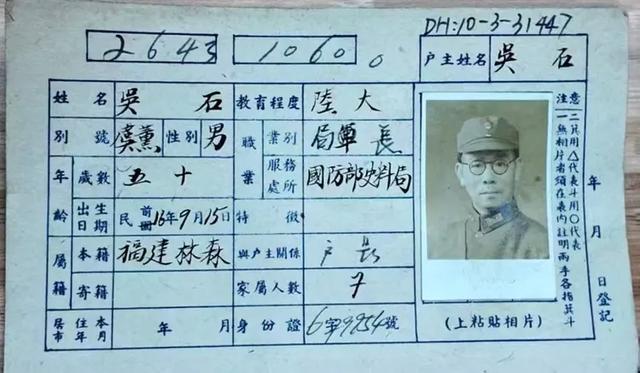 DH:10-3-31447
2643 1060 0 户主姓名 吳石
姓名 吳石 教育程度 陸大
別號 虞薰 性別 男 職業 業別 軍 局長
年齡 歲數 五十 服務處所 國防部史料局
出生日期 民前16年9月15日 特徵
屬籍 本籍 福建林森 與户主關係 户長
寄籍 家屬人數 7
居住本市年月 年 月 身份證 6字9954號
(上粘貼相片)
注意
一無相片者須在表內註明兩手各指箕斗
二箕用△代表斗用○代表
年 月 日登記